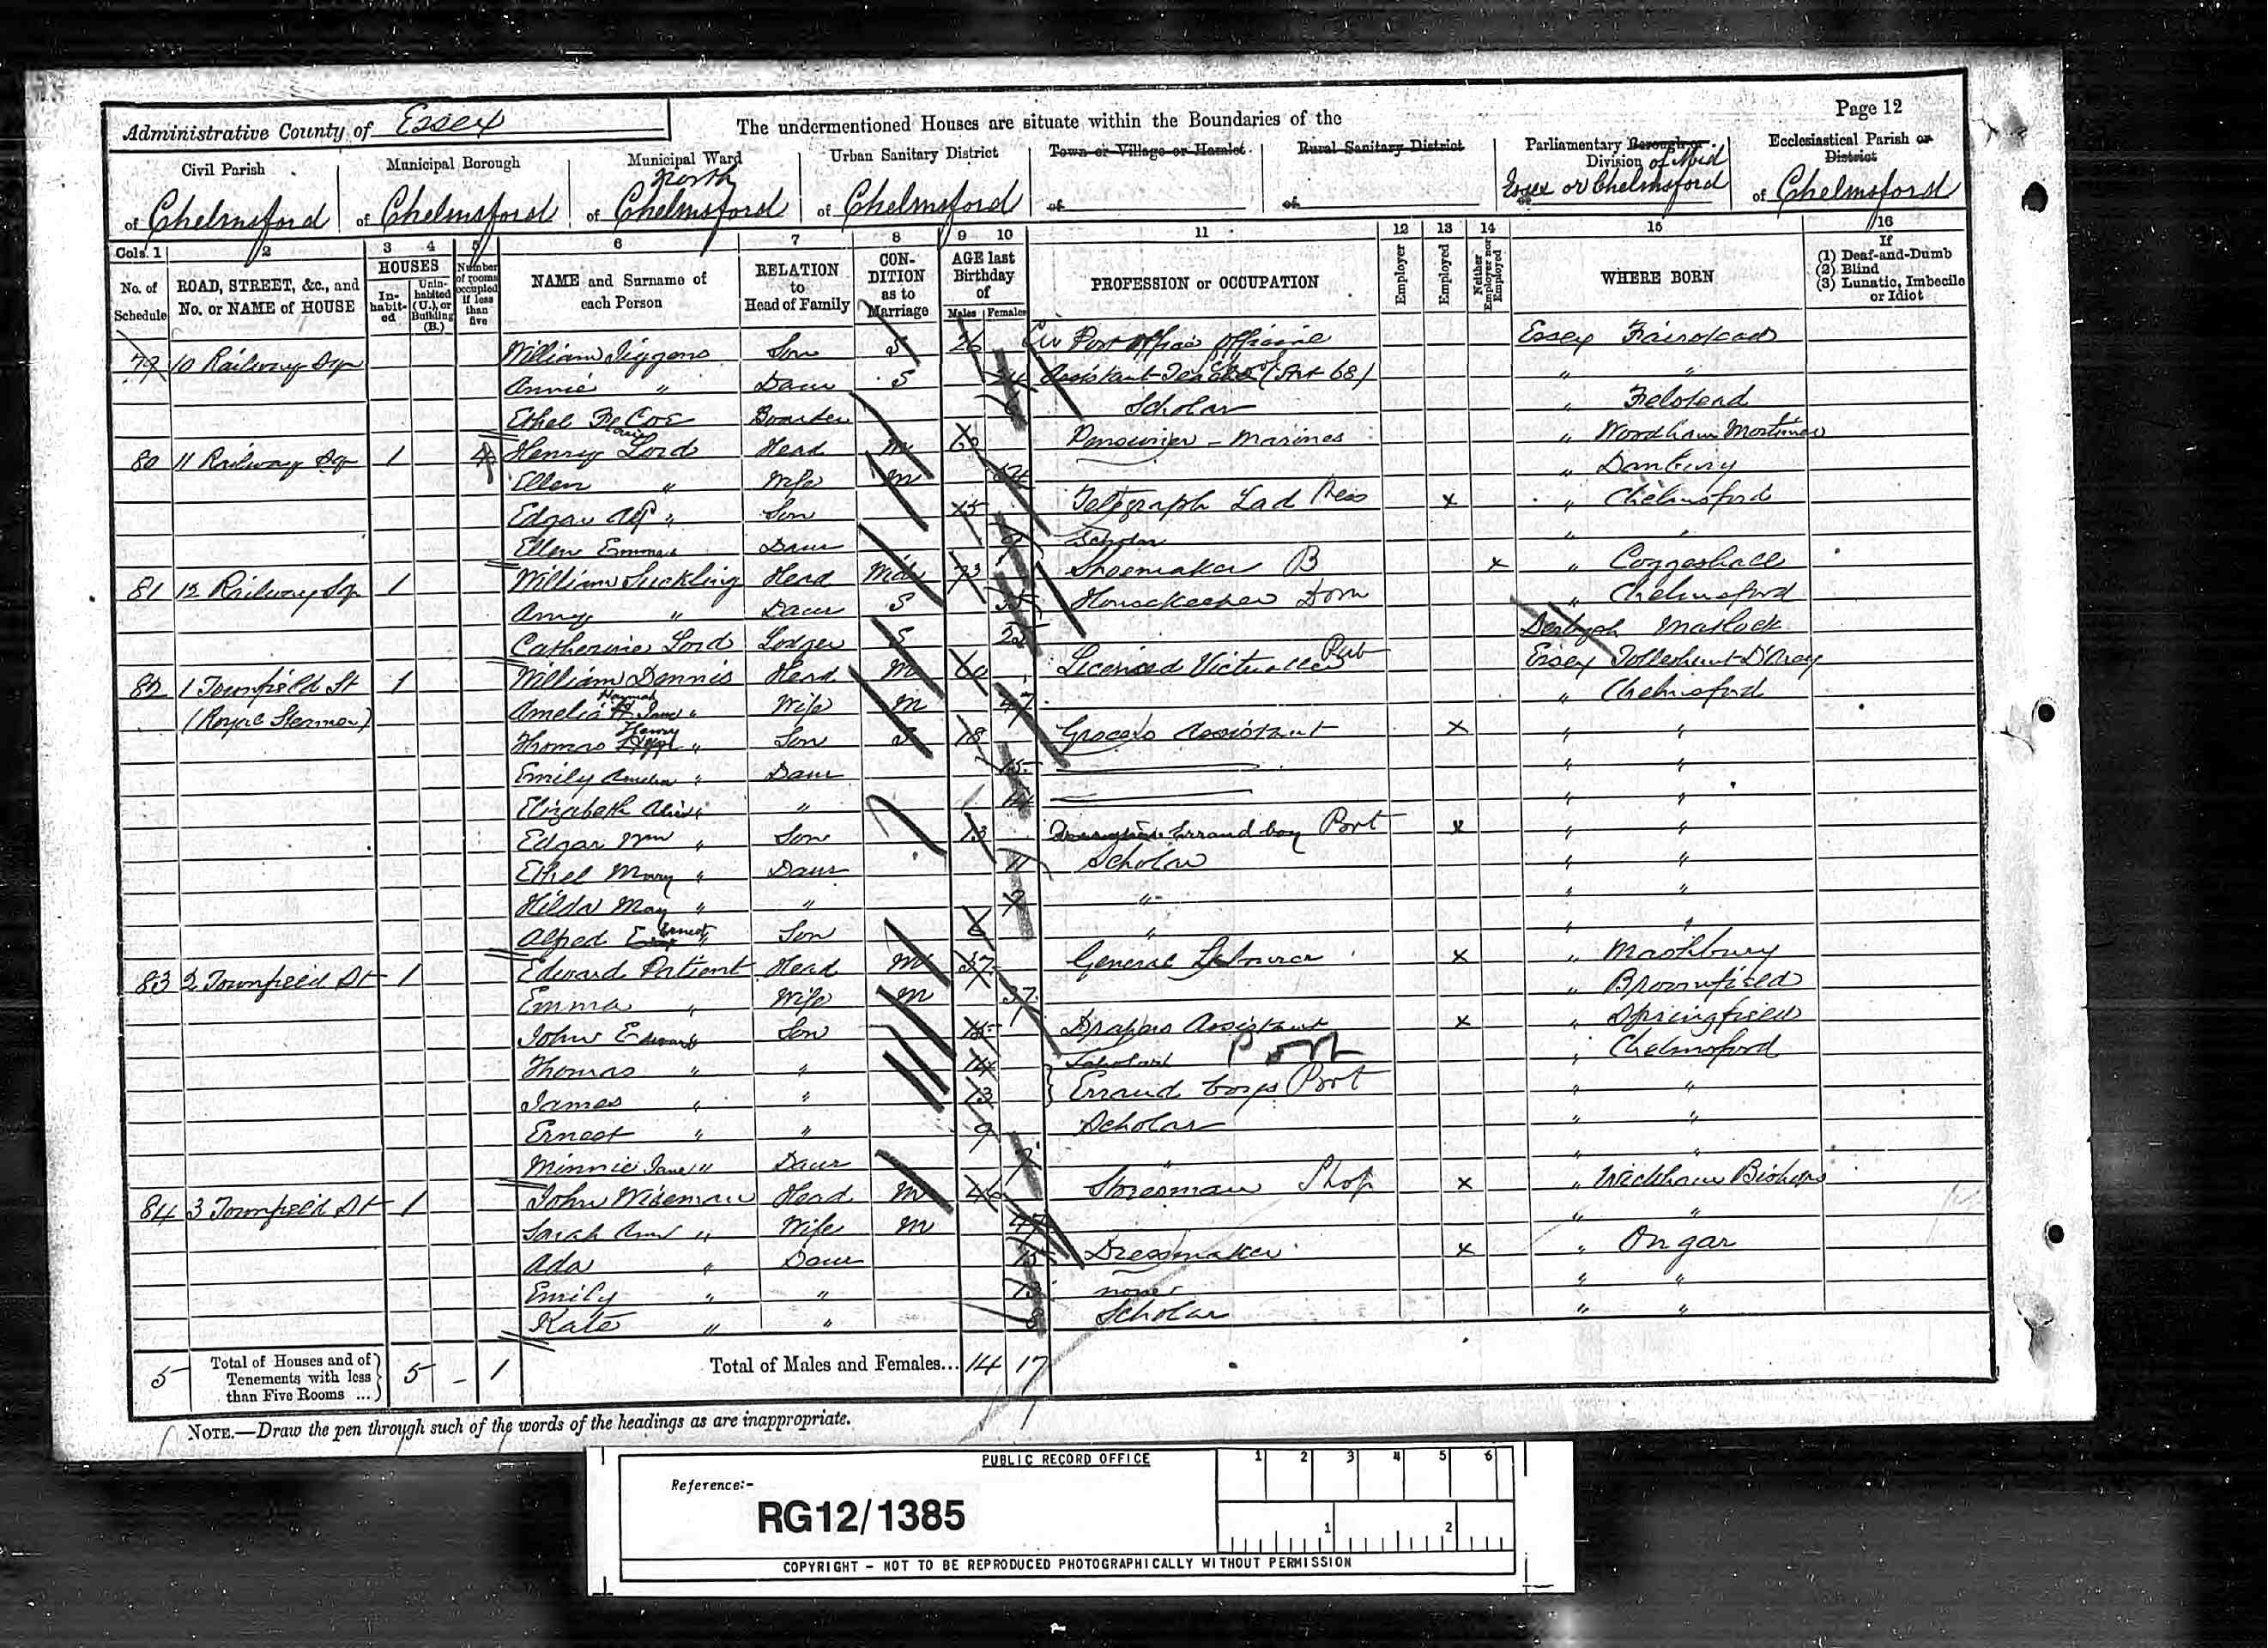 Page 12
Administrative County of Essex
The undermentioned Houses are situate within the Boundaries of the
Civil Parish of Chelmsford
Municipal Borough of Chelmsford
Municipal Ward North of Chelmsford
Urban Sanitary District of Chelmsford
Town or Village or Hamlet of
Rural Sanitary District of
Parliamentary Borough or Division of Mid Essex or Chelmsford
Ecclesiastical Parish or District of Chelmsford
Cols. 1 2 3 4 5 6 7 8 9 10 11 12 13 14 15 16
No. of Schedule
ROAD, STREET, &c., and No. or NAME of HOUSE
HOUSES
Inhabited
Uninhabited (U.), or Building (B.)
Number of rooms occupied if less than five
NAME and Surname of each Person
RELATION to Head of Family
CONDITION as to Marriage
AGE last Birthday of
Males Females
PROFESSION or OCCUPATION
Employer
Employed
Neither Employer nor Employed
WHERE BORN
If
(1) Deaf-and-Dumb
(2) Blind
(3) Lunatic, Imbecile or Idiot
79 10 Railway Sqr William Jiggens Son S 26 Post office official Essex Fairstead
Annie " Daur S Assistant Teacher (Art 68) " "
Ethel Coe Boarder Scholar " Felstead
80 11 Railway Sqr 1 4 Henry Lord Head M Pensioner - Marines " Woodham Mortimer
Ellen " Wife M " Danbury
Edgar Alf " Son 15 Telegraph Lad Mess x " Chelmsford
Ellen Emma Daur 9 Scholar " "
81 12 Railway Sqr 1 William Suckling Head Widr 73 Shoemaker B x " Coggeshall
Amy " Daur S 35 Housekeeper Dom " Chelmsford
Catherine Lord Lodger S 22 Derbysh Matlock
82 1 Townfield St 1 William Dennis Head M 60 Licensed Victualler Pub Essex Tolleshunt D'Arcy
(Royal Steamer) Amelia Jane " Wife M 47 " Chelmsford
Thomas Henry " Son S 18 Grocers Assistant x " "
Emily Amelia " Daur 15 " "
Elizabeth Alice " " 14 " "
Edgar Wm " Son 13 Errand boy Port x " "
Ethel Mary " Daur 11 Scholar " "
Hilda May " " " " "
Alfred Ernest " Son 6 " " "
83 2 Townfield St 1 Edward Patient Head M 37 General Labourer x " Mashbury
Emma " Wife M 37 " Broomfield
John Edward Son 15 Drapers Assistant x " Springfield
Thomas " " 14 Scholar Port " Chelmsford
James " " 13 Errand boys Port " "
Ernest " " 9 Scholar " "
Minnie Jane " Daur 7 " " "
84 3 Townfield St 1 John Wiseman Head M 46 Storesman Shop x " Wickham Bishops
Sarah Ann " Wife M 47 " "
Ada " Daur 15 Dressmaker x " Ongar
Emily " " 13 none " "
Kate " " 8 Scholar " "
5 Total of Houses and of Tenements with less than Five Rooms ... 5 - 1 Total of Males and Females... 14 17
NOTE.—Draw the pen through such of the words of the headings as are inappropriate.
PUBLIC RECORD OFFICE
1 2 3 4 5 6
Reference:-
RG12/1385
1 2
COPYRIGHT - NOT TO BE REPRODUCED PHOTOGRAPHICALLY WITHOUT PERMISSION